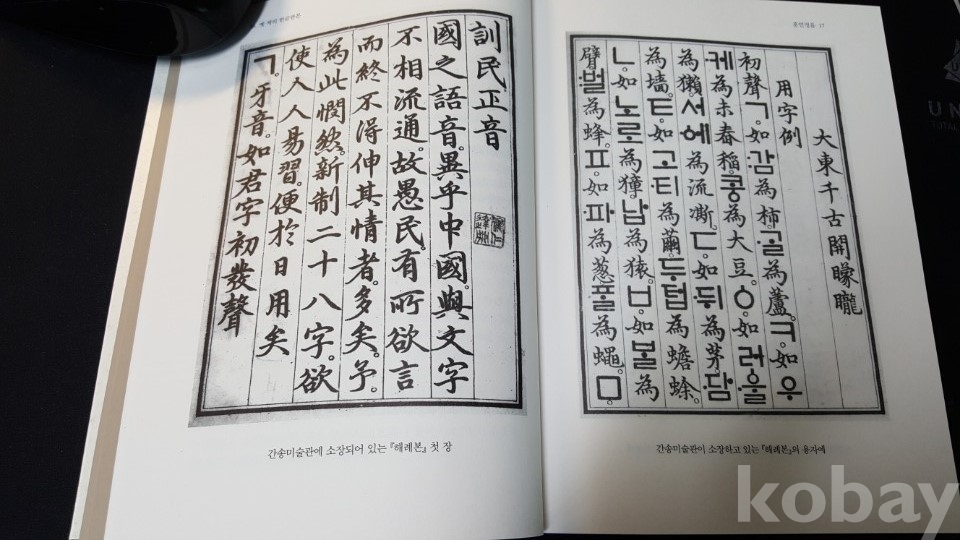 훈민정음 17
訓民正音
國之語音。異乎中國。與文字
不相流通。故愚民。有所欲言
而終不得伸其情者。多矣。予。
為此憫然。新制二十八字。欲
使人人易習。便於日用矣
ㄱ。牙音。如君字初發聲
간송미술관에 소장되어 있는 『해례본』 첫 장
大東千古開矇矓
用字例
初聲ㄱ。如감為柿。ᄀᆞᆯ為蘆。ㅋ。如우
케為未舂稻。콩為大豆。ㆁ。如러ᅌᅮᆯ
為獺。서에為流凘。ㄷ。如뒤為茅。담
為墻。ㅌ。如고티為繭。두텁為蟾蜍。
ㄴ。如노로為獐。납為猿。ㅂ。如ᄇᆞᆯ為
臂。벌為蜂。ㅍ。如파為葱。ᄑᆞᆯ為蠅。ㅁ
간송미술관이 소장하고 있는 『해례본』의 용자예
kobay